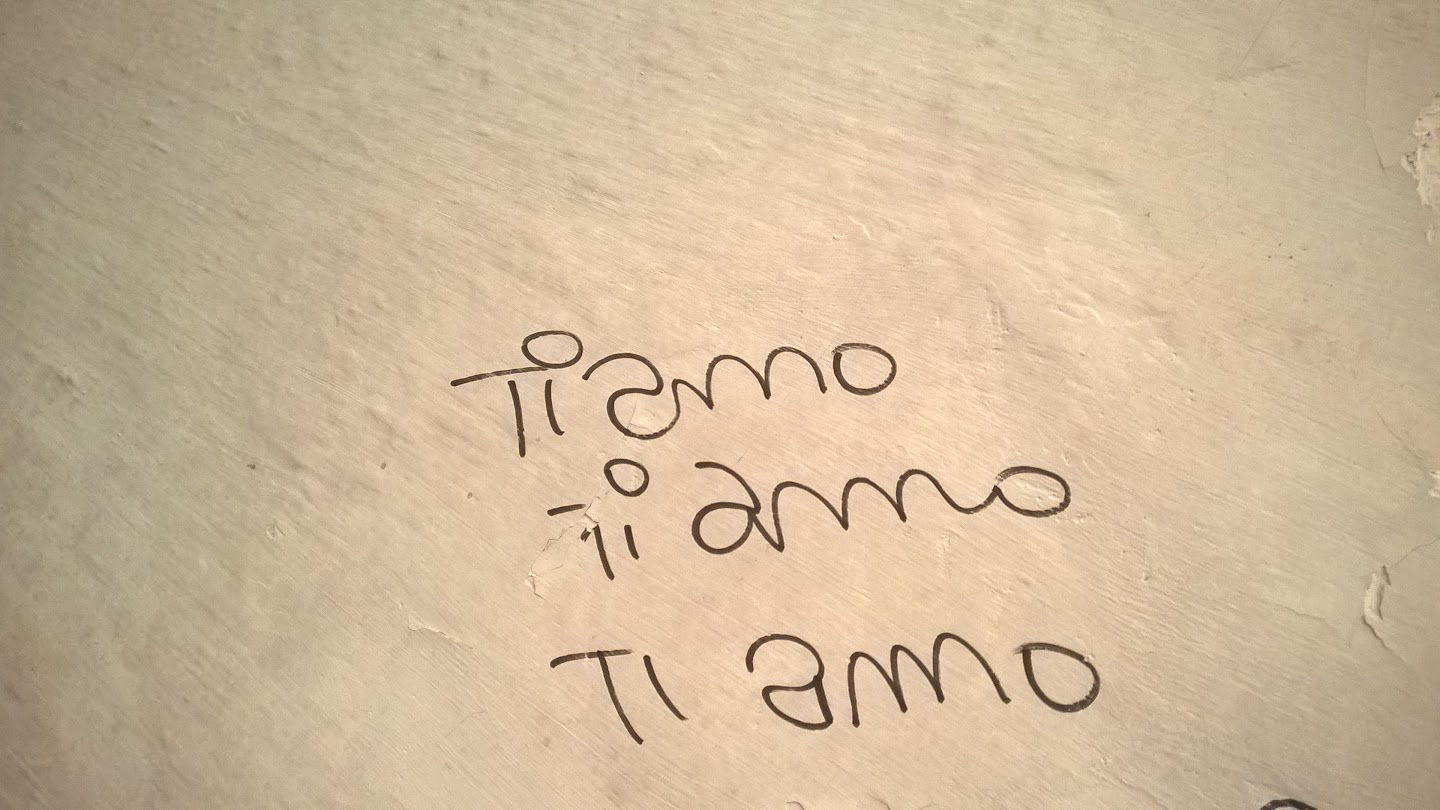 Ti amo
Ti amo
Ti amo